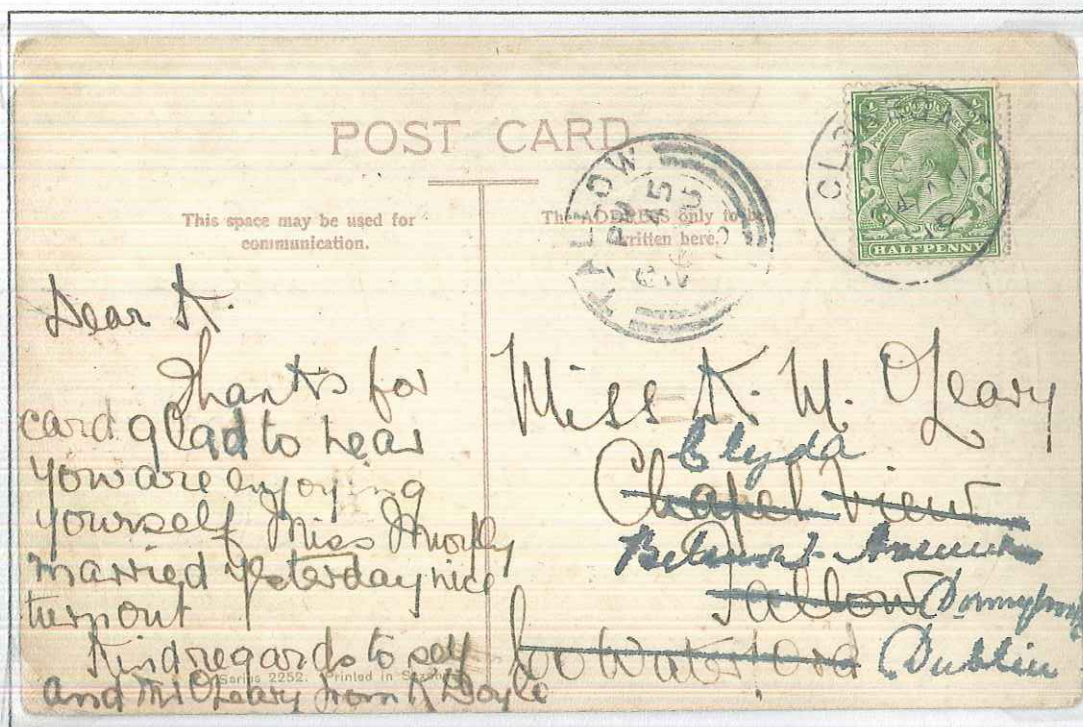 POST CARD
This space may be used for
communication.
The ADDRESS only to be
written here.
TALLOW
HALFPENNY
Dear K.
Thanks for
card glad to hear
you are enjoying
yourself Miss Murphy
married yesterday nice
turnout
Kind regards to self
and Mr O'Leary from K Doyle
Series 2252. Printed in Saxony
Miss K. M. O'Leary
Clyda
Chapel View
Belmont Avenue
Tallow Donnybrook
Co Waterford Dublin